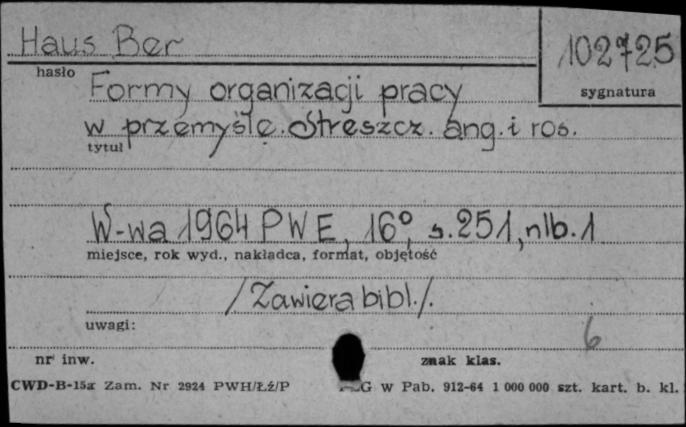 Haus Ber
102725
hasło
sygnatura
Formy organizacji pracy
w przemyśle. Streszcz. ang. i ros.
tytuł
W-wa 1964 PWE, 16°, s. 251, nlb. 1
miejsce, rok wyd., nakładca, format, objętość
/Zawiera bibl./.
uwagi:
6
nr inw.
znak klas.
CWD-B-15a Zam. Nr 2924 PWH/Łź/P
G w Pab. 912-64 1 000 000 szt. kart. b. kl.